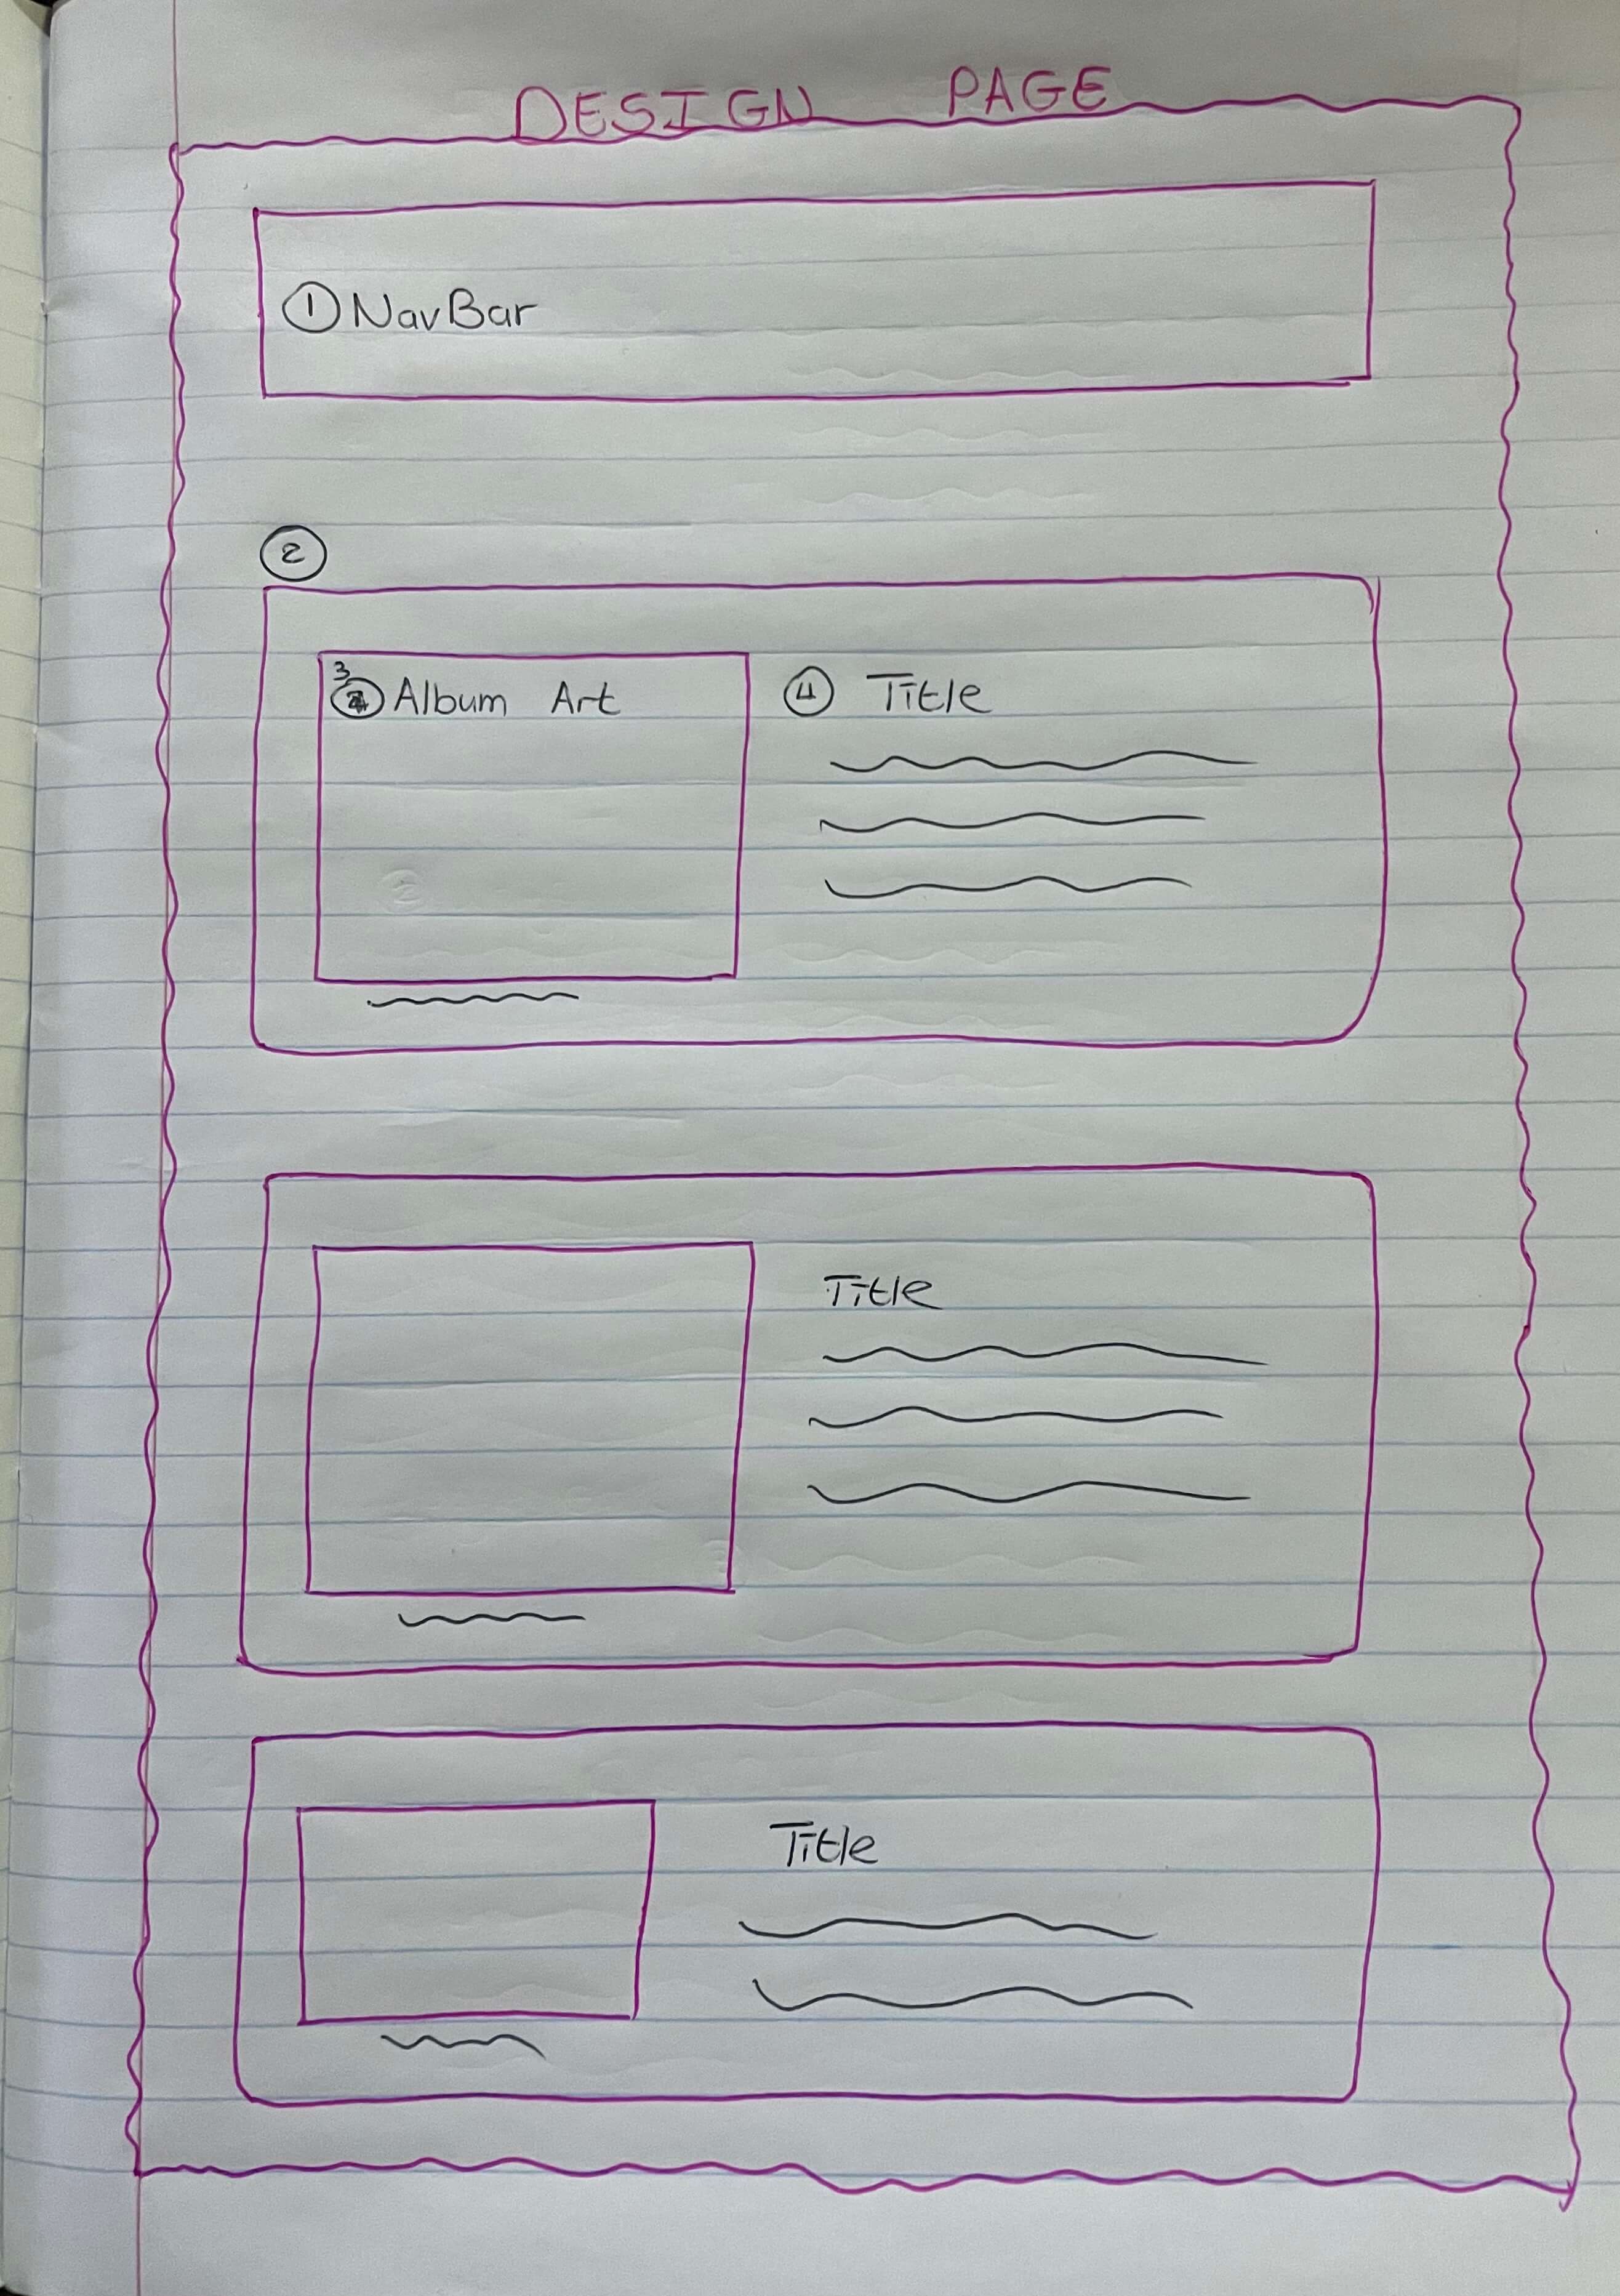 DESIGN PAGE
1 NavBar
2
3 Album Art
4 Title
Title
Title